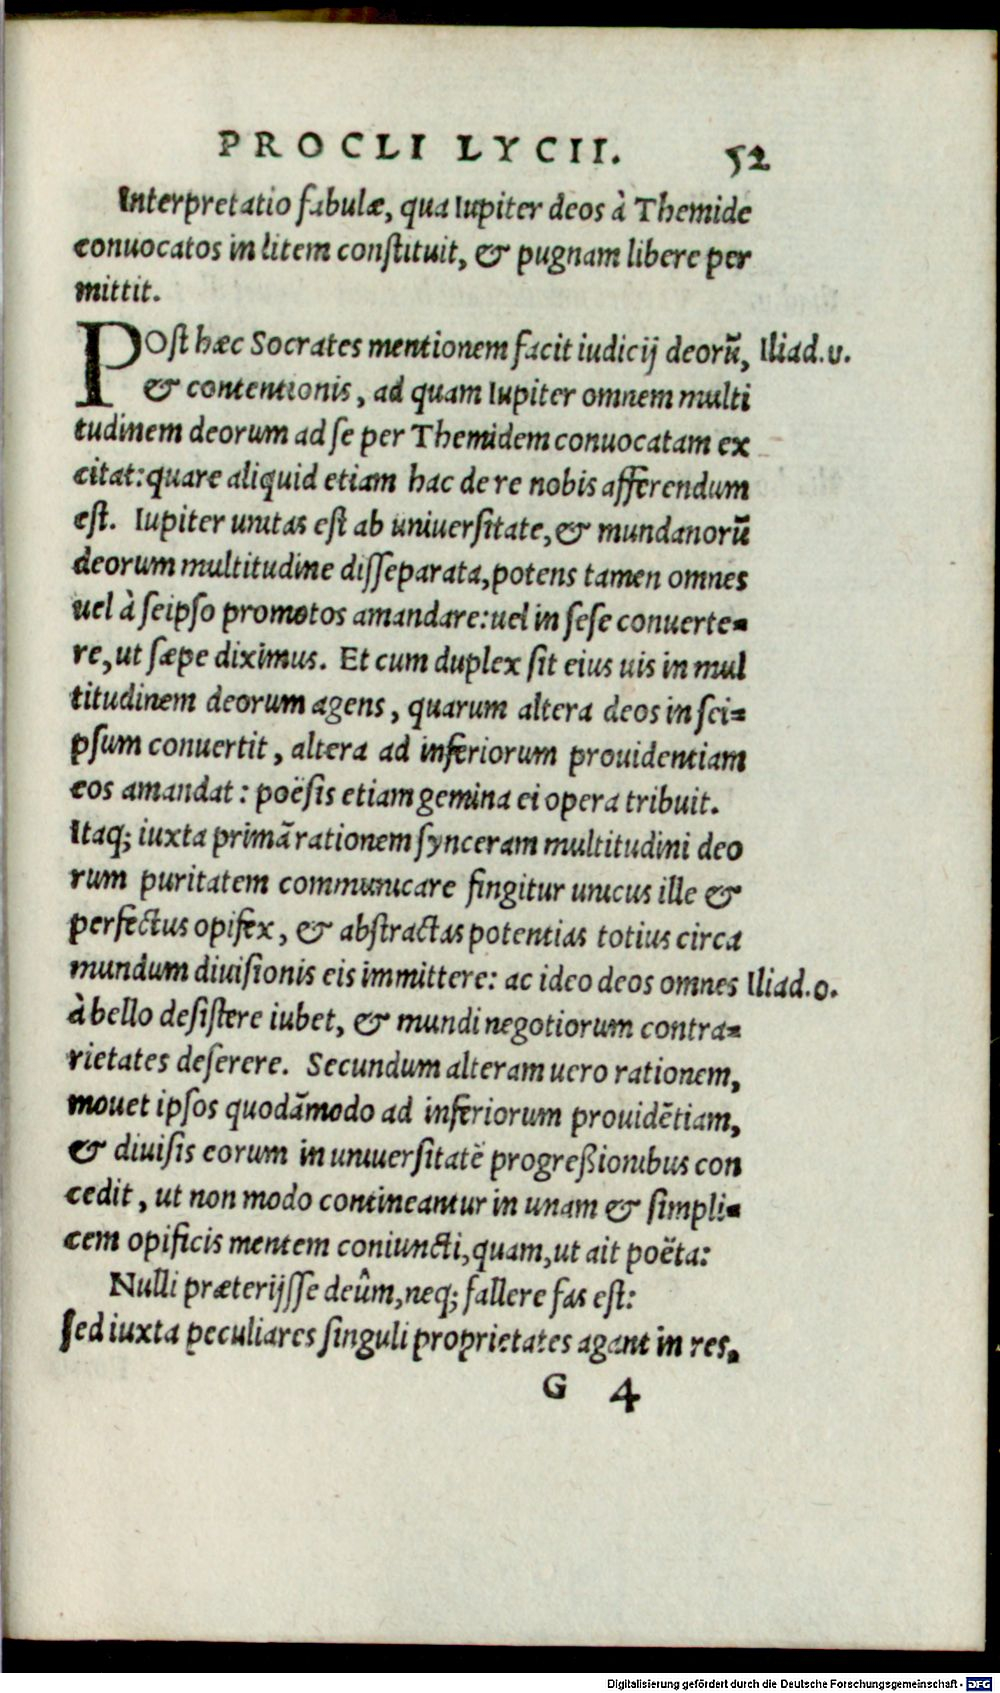 PROCLI LYCII. 52
Interpretatio fabulæ, qua Iupiter deos à Themide
conuocatos in litem constituit, & pugnam libere per
mittit.
POst hæc Socrates mentionem facit iudicij deorū, Iliad.υ.
& contentionis, ad quam Iupiter omnem multi
tudinem deorum ad se per Themidem conuocatam ex
citat: quare aliquid etiam hac de re nobis afferendum
est. Iupiter unitas est ab uniuersitate, & mundanorū
deorum multitudine disseparata, potens tamen omnes
uel à seipso promotos amandare: uel in sese conuerte=
re, ut sæpe diximus. Et cum duplex sit eius uis in mul
titudinem deorum agens, quarum altera deos in sei=
psum conuertit, altera ad inferiorum prouidentiam
eos amandat: poësis etiam gemina ei opera tribuit.
Itaq; iuxta primā rationem synceram multitudini deo
rum puritatem communicare fingitur unicus ille &
perfectus opifex, & abstractas potentias totius circa
mundum diuisionis eis immittere: ac ideo deos omnes Iliad.o.
à bello desistere iubet, & mundi negotiorum contra=
rietates deserere. Secundum alteram uero rationem,
mouet ipsos quodāmodo ad inferiorum prouidētiam,
& diuisis eorum in uniuersitatē progreßionibus con
cedit, ut non modo contineantur in unam & simpli=
cem opificis mentem coniuncti, quam, ut ait poëta:
Nulli præterijsse deûm, neq; fallere fas est:
Sed iuxta peculiares singuli proprietates agant in res.
G 4
Digitalisierung gefördert durch die Deutsche Forschungsgemeinschaft - DFG